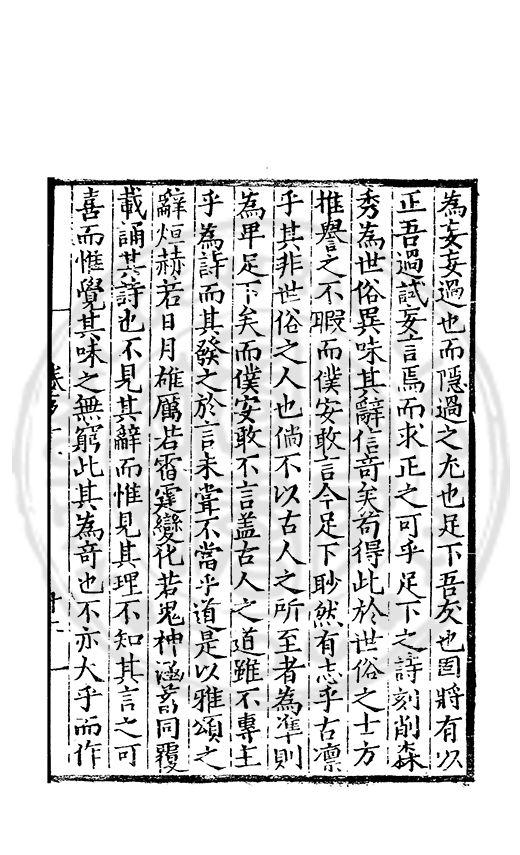 為妄妄過也而隱過之尤也足下吾友也固將有以
正吾過試妄言焉而求正之可乎足下之詩刻削森
秀為世俗異味其辭信奇矣苟得此於世俗之士方
推譽之不暇而僕安敢言今足下眇然有志乎古凛
乎其非世俗之人也倘不以古人之所至者為準則
為畢足下矣而僕安敢不言盖古人之道雖不專主
乎為詩而其發之於言未嘗不當乎道是以雅頌之
辭烜赫若日月雄厲若雷霆變化若鬼神涵蓄同覆
載誦其詩也不見其辭而惟見其理不知其言之可
喜而惟覺其味之無窮此其為奇也不亦大乎而作